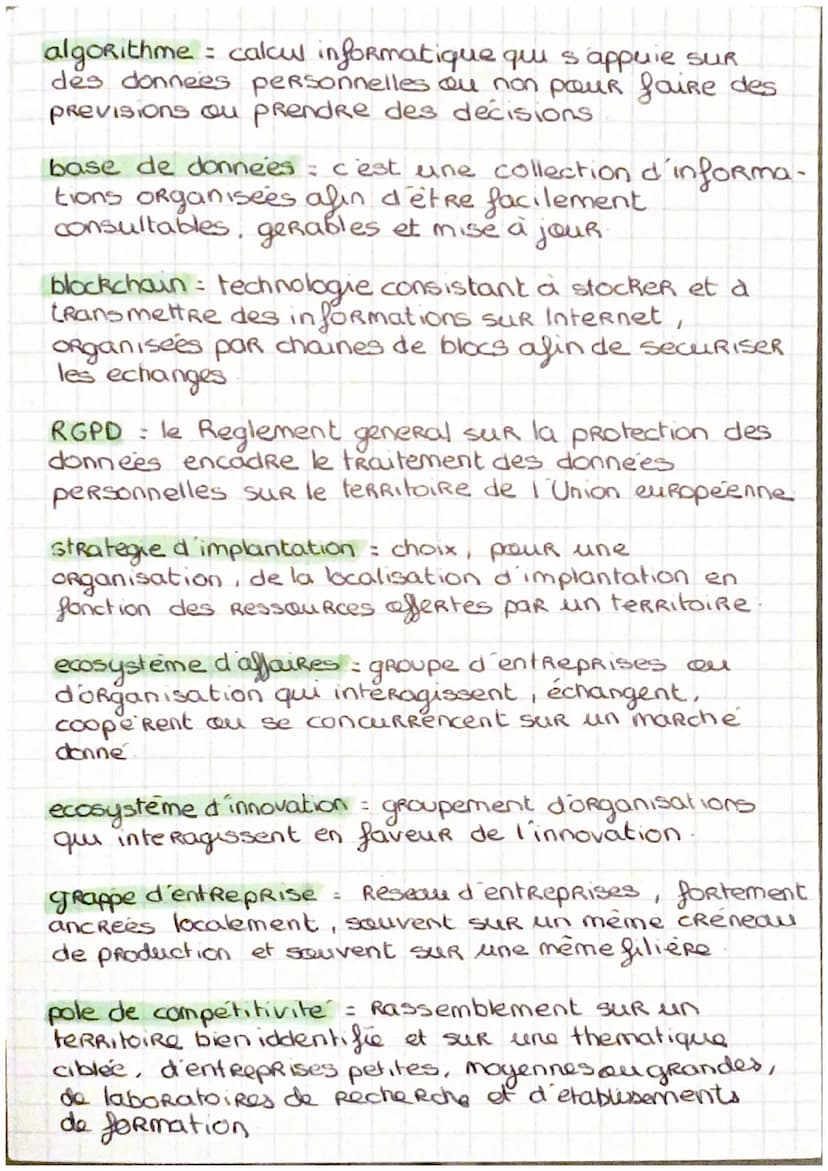 algorithme = calcul informatique qui s'appuie sur
des données personnelles ou non pour faire des
prévisions ou prendre des décisions
base de données = c'est une collection d'informa-
tions organisées afin d'être facilement
consultables, gerables et mise à jour
blockchain = technologie consistant à stocker et à
transmettre des informations sur Internet,
organisées par chaines de blocs afin de securiser
les echanges
RGPD = le Reglement general sur la protection des
données encadre le traitement des données
personnelles sur le territoire de l'Union européenne
strategie d'implantation = choix, pour une
organisation, de la localisation d'implantation en
fonction des ressources offertes par un territoire.
ecosystème d'affaires = groupe d'entreprises ou
d'organisation qui intéragissent, échangent,
coopèrent ou se concurrencent sur un marché
donné
ecosystème d'innovation = groupement d'organisations
qui interagissent en faveur de l'innovation.
grappe d'entreprise = Réseau d'entreprises, fortement
ancrées localement, souvent sur un même créneau
de production et souvent sur une même filière
pole de compétitivité = Rassemblement sur un
territoire bien iddentifié et sur une thematique
ciblée, d'entreprises petites, moyennes ou grandes,
de laboratoires de recherche et d'etablissements
de formation